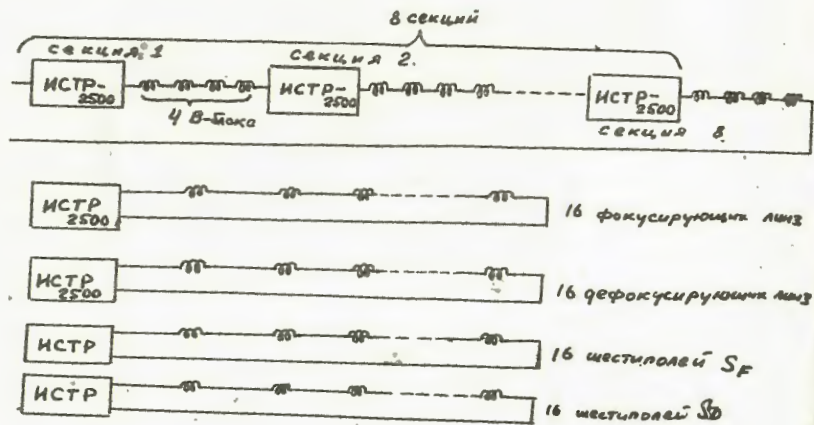 8 секций
секция 1
секция 2.
ИСТР-
2500
ИСТР-
2500
ИСТР-
2500
4 В-блока
секция 8
ИСТР
2500
16 фокусирующих линз
ИСТР
2500
16 дефокусирующих линз
ИСТР
16 шестиполей SF
ИСТР
16 шестиполей SD